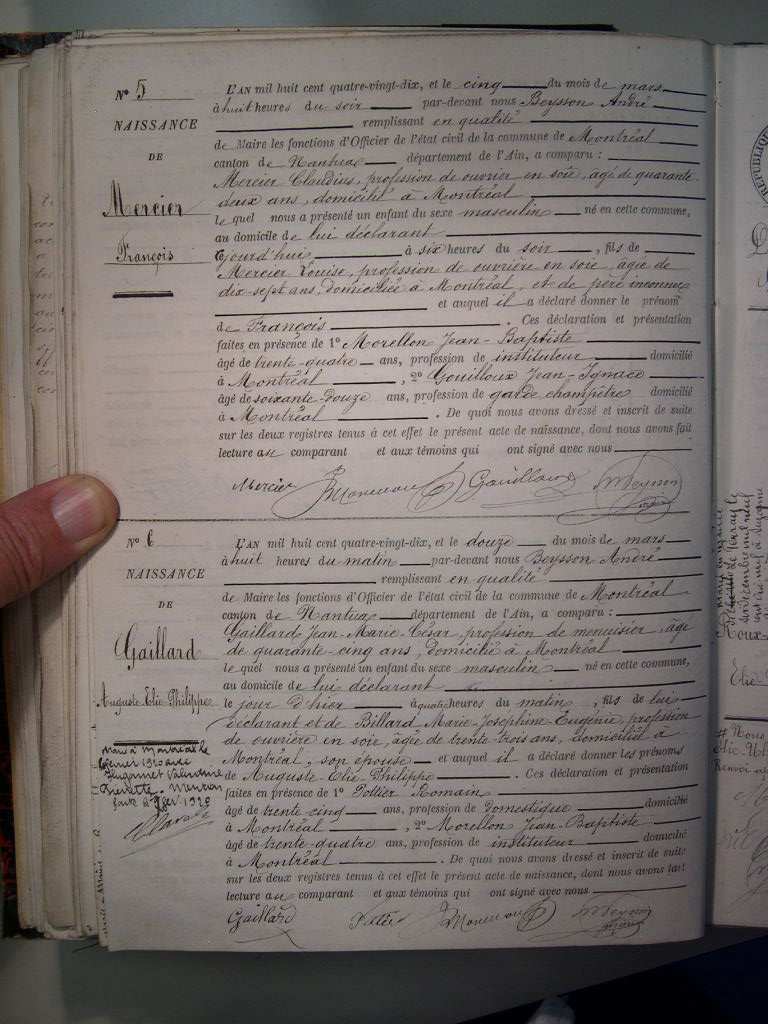 N° 5
NAISSANCE
DE
Mercier
François
L'AN mil huit cent quatre-vingt-dix, et le cinq du mois de mars
à huit heures du soir par-devant nous Beysson André
remplissant en qualité
de Maire les fonctions d'Officier de l'état civil de la commune de Montréal
canton de Nantua, département de l'Ain, a comparu :
Mercier Claudius, profession de ouvrier en soie, âgé de quarante
deux ans, domicilié à Montréal
le quel nous a présenté un enfant du sexe masculin né en cette commune,
au domicile de lui déclarant
ejourd'hui à six heures du soir, fils de
Mercier Louise, profession de ouvrière en soie, âgée de
dix-sept ans, domiciliée à Montréal, et de père inconnu
et auquel il a déclaré donner le prénom
de François. Ces déclaration et présentation
faites en présence de 1° Morellon Jean-Baptiste
âgé de trente-quatre ans, profession de instituteur domicilié
à Montréal, 2° Gouilloux Jean-Ignace
âgé de soixante-douze ans, profession de garde champêtre domicilié
à Montréal. De quoi nous avons dressé et inscrit de suite
sur les deux registres tenus à cet effet le présent acte de naissance, dont nous avons fait
lecture au comparant et aux témoins qui ont signé avec nous
Mercier
N° 6
NAISSANCE
DE
Gaillard
Auguste Elie Philippe
Marié à Montréal le
février 1920 avec
Valentine
L'AN mil huit cent quatre-vingt-dix, et le douze du mois de mars
à huit heures du matin par-devant nous Beysson André
remplissant en qualité
de Maire les fonctions d'Officier de l'état civil de la commune de Montréal
canton de Nantua département de l'Ain, a comparu :
Gaillard Jean-Marie-César, profession de menuisier, âgé
de quarante-cinq ans, domicilié à Montréal
le quel nous a présenté un enfant du sexe masculin né en cette commune,
au domicile de lui déclarant
le jour d'hier à quatre heures du matin, fils de lui
déclarant et de Billard Marie-Joséphine-Eugénie, profession
de ouvrière en soie, âgée de trente-trois ans, domiciliée à
Montréal, son épouse et auquel il a déclaré donner les prénoms
de Auguste-Elie-Philippe. Ces déclaration et présentation
faites en présence de 1° Romain
âgé de trente cinq ans, profession de domestique domicilié
à Montréal, 2° Morellon Jean-Baptiste
âgé de trente-quatre ans, profession de instituteur domicilié
à Montréal. De quoi nous avons dressé et inscrit de suite
sur les deux registres tenus à cet effet le présent acte de naissance, dont nous avons fait
lecture au comparant et aux témoins qui ont signé avec nous
Gaillard